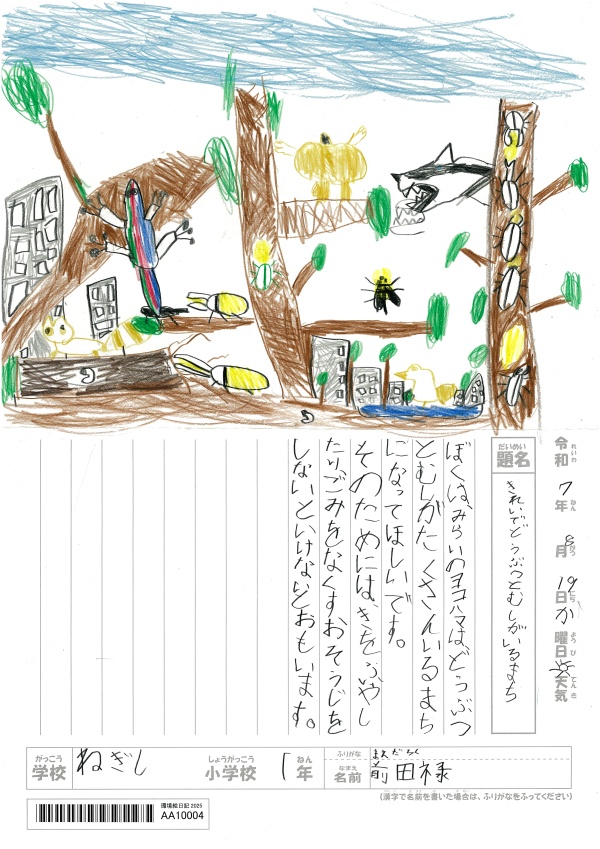 令和7年8月19日か曜日天気
れいわ ねん がつ にち ようび てんき
だいめい
題名
きれいでどうぶつとむしがいるまち
ぼくは、みらいのヨコハマはどうぶつ
とむしがたくさんいるまち
になってほしいです。
そのためには、きをふやし
たり、ごみをなくすおそうじを
しないといけないとおもいます。
がっこう
学校
ねぎし
しょうがっこう
小学校
1年
ねん
ふりがな
まえだろく
なまえ
名前
前田禄
(漢字で名前を書いた場合は、ふりがなをふってください)
環境絵日記 2025
AA10004